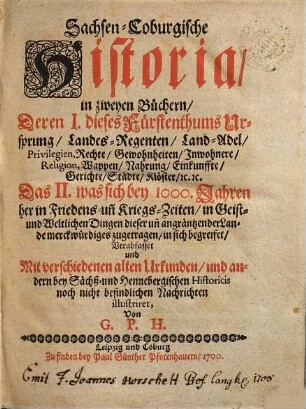 Sachsen-Coburgische
Historia/
in zweyen Büchern/
Deren I. dieses Fürstenthums Ur-
sprung/ Landes-Regenten/ Land-Adel/
Privilegien, Rechte/ Gewohnheiten/ Inwohnere/
Religion, Wappen/ Nahrung/ Einkunffte/
Gerichte/ Städte/ Klöster/ ꝛc. ꝛc.
Das II. was sich bey 1000. Jahren
her in Friedens- uñ Kriegs-Zeiten/ in Geist-
und Weltlichen Dingen dieser uñ angräntzender Lan-
de merckwürdiges zugetragen/ in sich begreifet/
Verabfasset
und
Mit verschiedenen alten Urkunden/ und an-
dern bey Sächß- und Hennebergischen Historicis
noch nicht befindlichen Nachrichten
illustriret,
Von
G. P. H.
Leipzig und Coburg
Zu finden bey Paul Günther Pfotenhauern/ 1700.
Emit F. Joannes